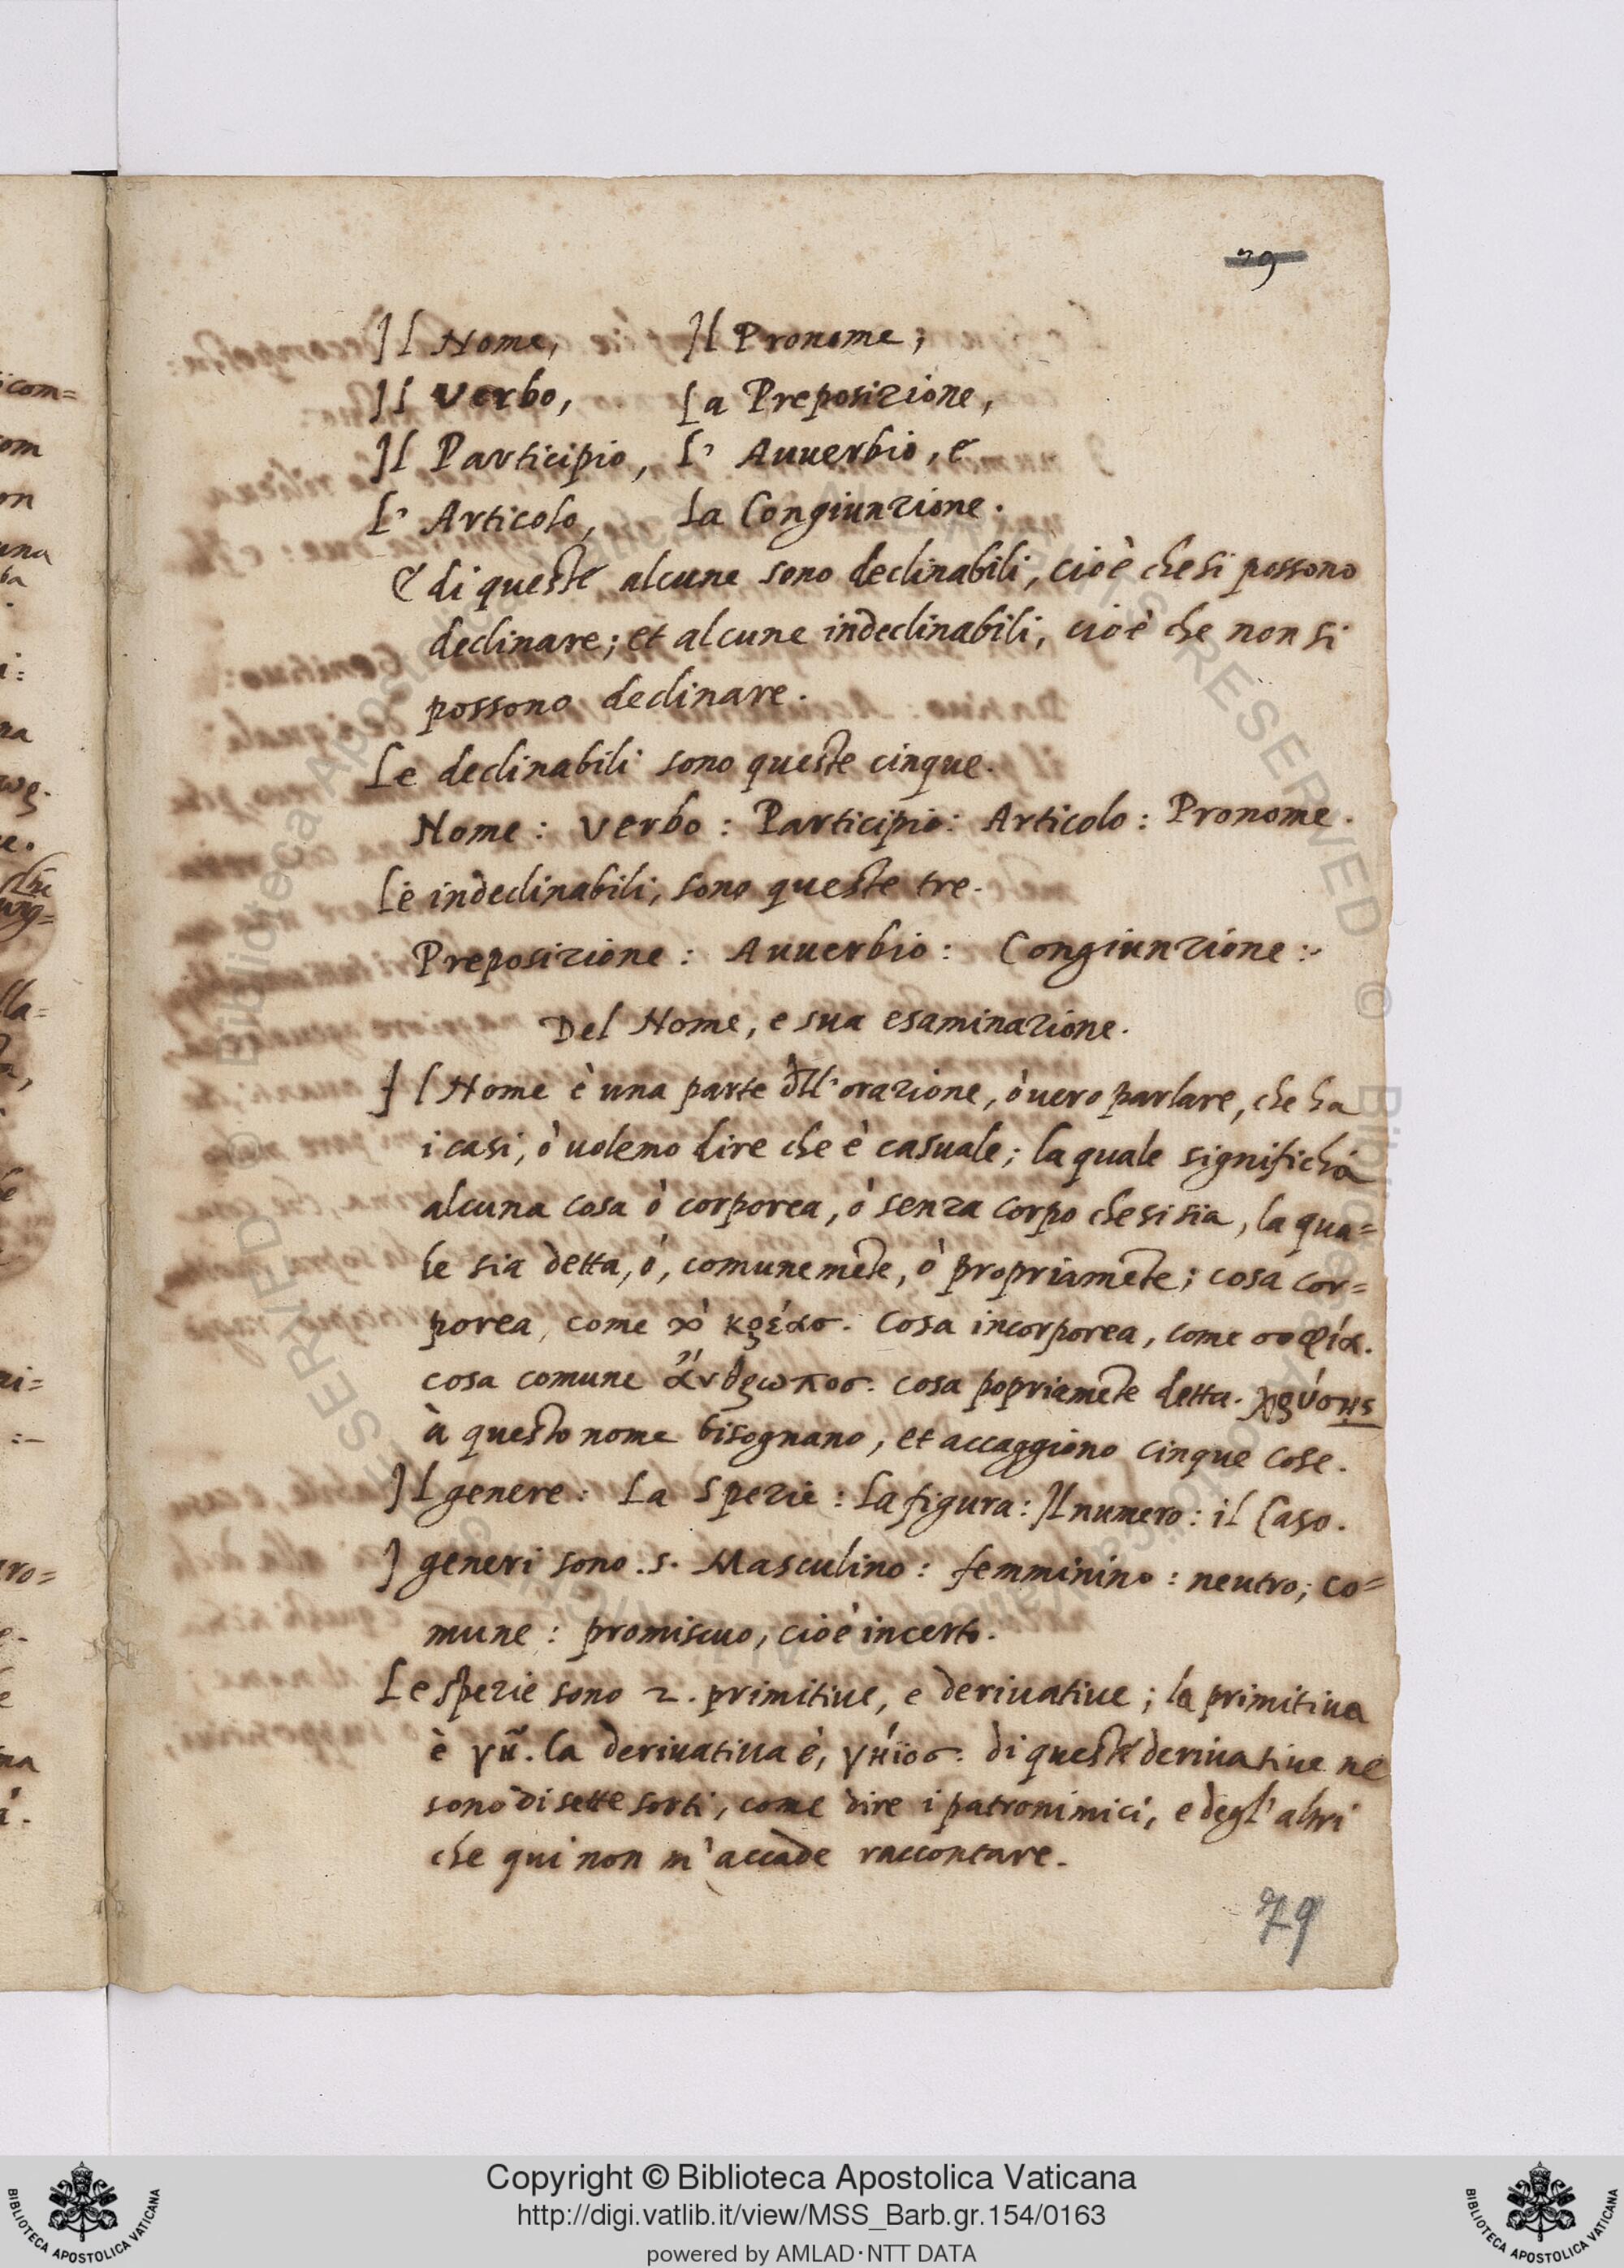 79
Il Nome, Il Pronome;
Il Verbo, La Preposizione,
Il Participio, L' Auuerbio, e
L' Articolo, La Congiunzione.
E di queste alcune sono declinabili, cioè che si possono
declinare; et alcune indeclinabili, cioè che non si
possono declinare.
Le declinabili sono queste cinque.
Nome: Verbo: Participio: Articolo: Pronome.
Le indeclinabili, sono queste tre.
Preposizione: Auuerbio: Congiunzione:
Del Nome, e sua esaminazione.
Il Nome è una parte dell'orazione, ò uero parlare, che ha
i casi, ò uolemo dire che è casuale; la quale significhà
alcuna cosa ò corporea, ò senza corpo che si sia, la qua=
le sia detta, ò, comunemẽte, ò propriamẽte; cosa cor=
porea, come τὸ κρέασ. Cosa incorporea, come σοφία.
cosa comune ἄνθρωποσ. cosa popriamẽte detta. χρύσης
à questo nome bisognano, et accaggiono cinque cose.
Il genere: La Spezie: La figura: Il numero: il Caso.
I generi sono .5. Masculino: femminino: neutro; co=
mune: promiscuo, cioè incerto.
Le spezie sono 2. primitiue, e deriuatiue; la primitiua
è γῆ. la deriuatiua è, γήϊοσ. di queste deriuatiue ne
sono di sette sorti, come dire i patronimici, e degl'altri
che qui non m'accade raccontare.
79
Copyright © Biblioteca Apostolica Vaticana
http://digi.vatlib.it/view/MSS_Barb.gr.154/0163
powered by AMLAD·NTT DATA
BIBLIOTECA APOSTOLICA VATICANA
BIBLIOTECA APOSTOLICA VATICANA